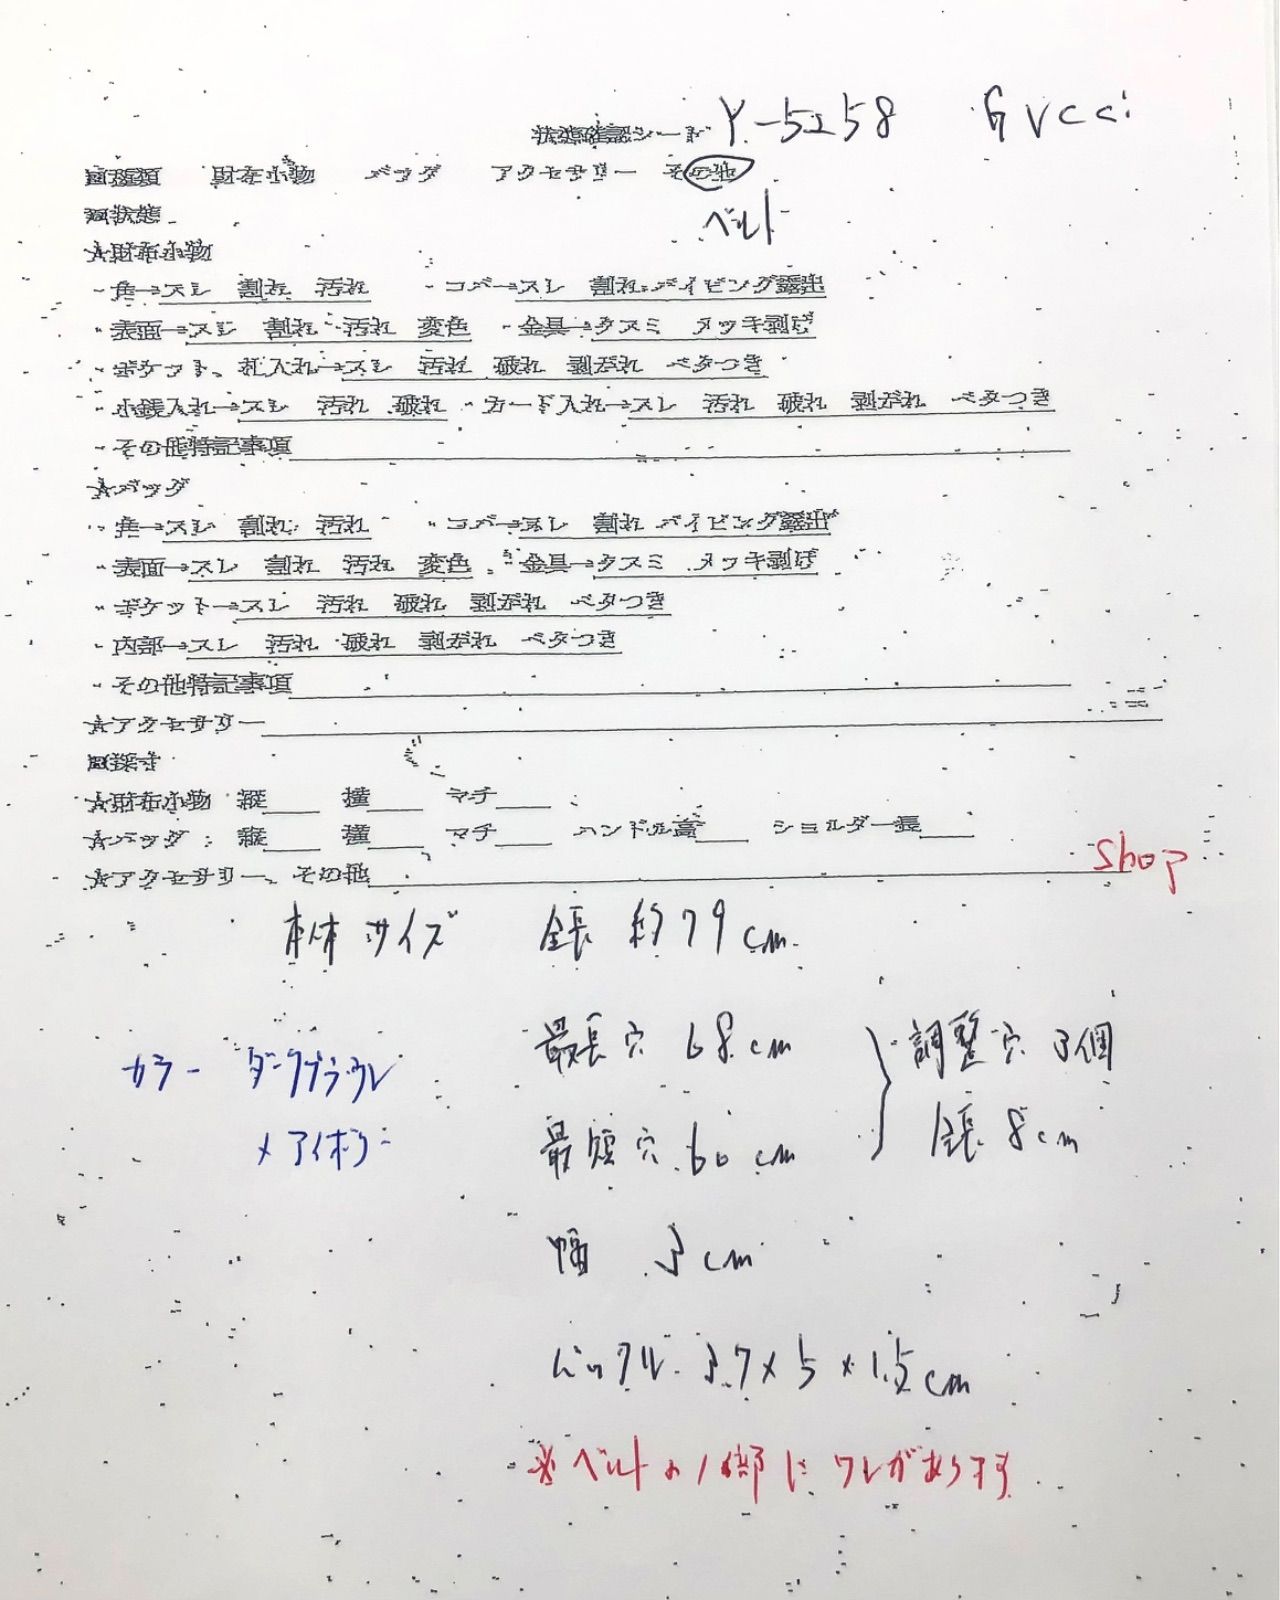 状態確認シート Y-5258 Gucci
□種類 財布小物 バッグ アクセサリー その他
ベルト
□状態
★財布小物
・角→スレ 割れ 汚れ ・コバ→スレ 割れ パイピング露出
・表面→スレ 割れ 汚れ 変色 ・金具→クスミ メッキ剥げ
・ポケット、札入れ→スレ 汚れ 破れ 剥がれ ベタつき
・小銭入れ→スレ 汚れ 破れ ・カード入れ→スレ 汚れ 破れ 剥がれ ベタつき
・その他特記事項
★バッグ
・角→スレ 割れ 汚れ ・コバ→スレ 割れ パイピング露出
・表面→スレ 割れ 汚れ 変色 ・金具→クスミ メッキ剥げ
・ポケット→スレ 汚れ 破れ 剥がれ ベタつき
・内部→スレ 汚れ 破れ 剥がれ ベタつき
・その他特記事項
★アクセサリー
□採寸
★財布小物 縦 横 マチ
★バッグ:縦 横 マチ ハンドル高 ショルダー長
★アクセサリー、その他
shop
本体サイズ 全長 約79cm
最長穴 68cm 調整穴 3個
カラー ダークブラウン
最短穴 60cm 全長 8cm
×アイボリー
幅 3cm
バックル 3.7×5×1.5cm
※ベルトの1部にワレがあります